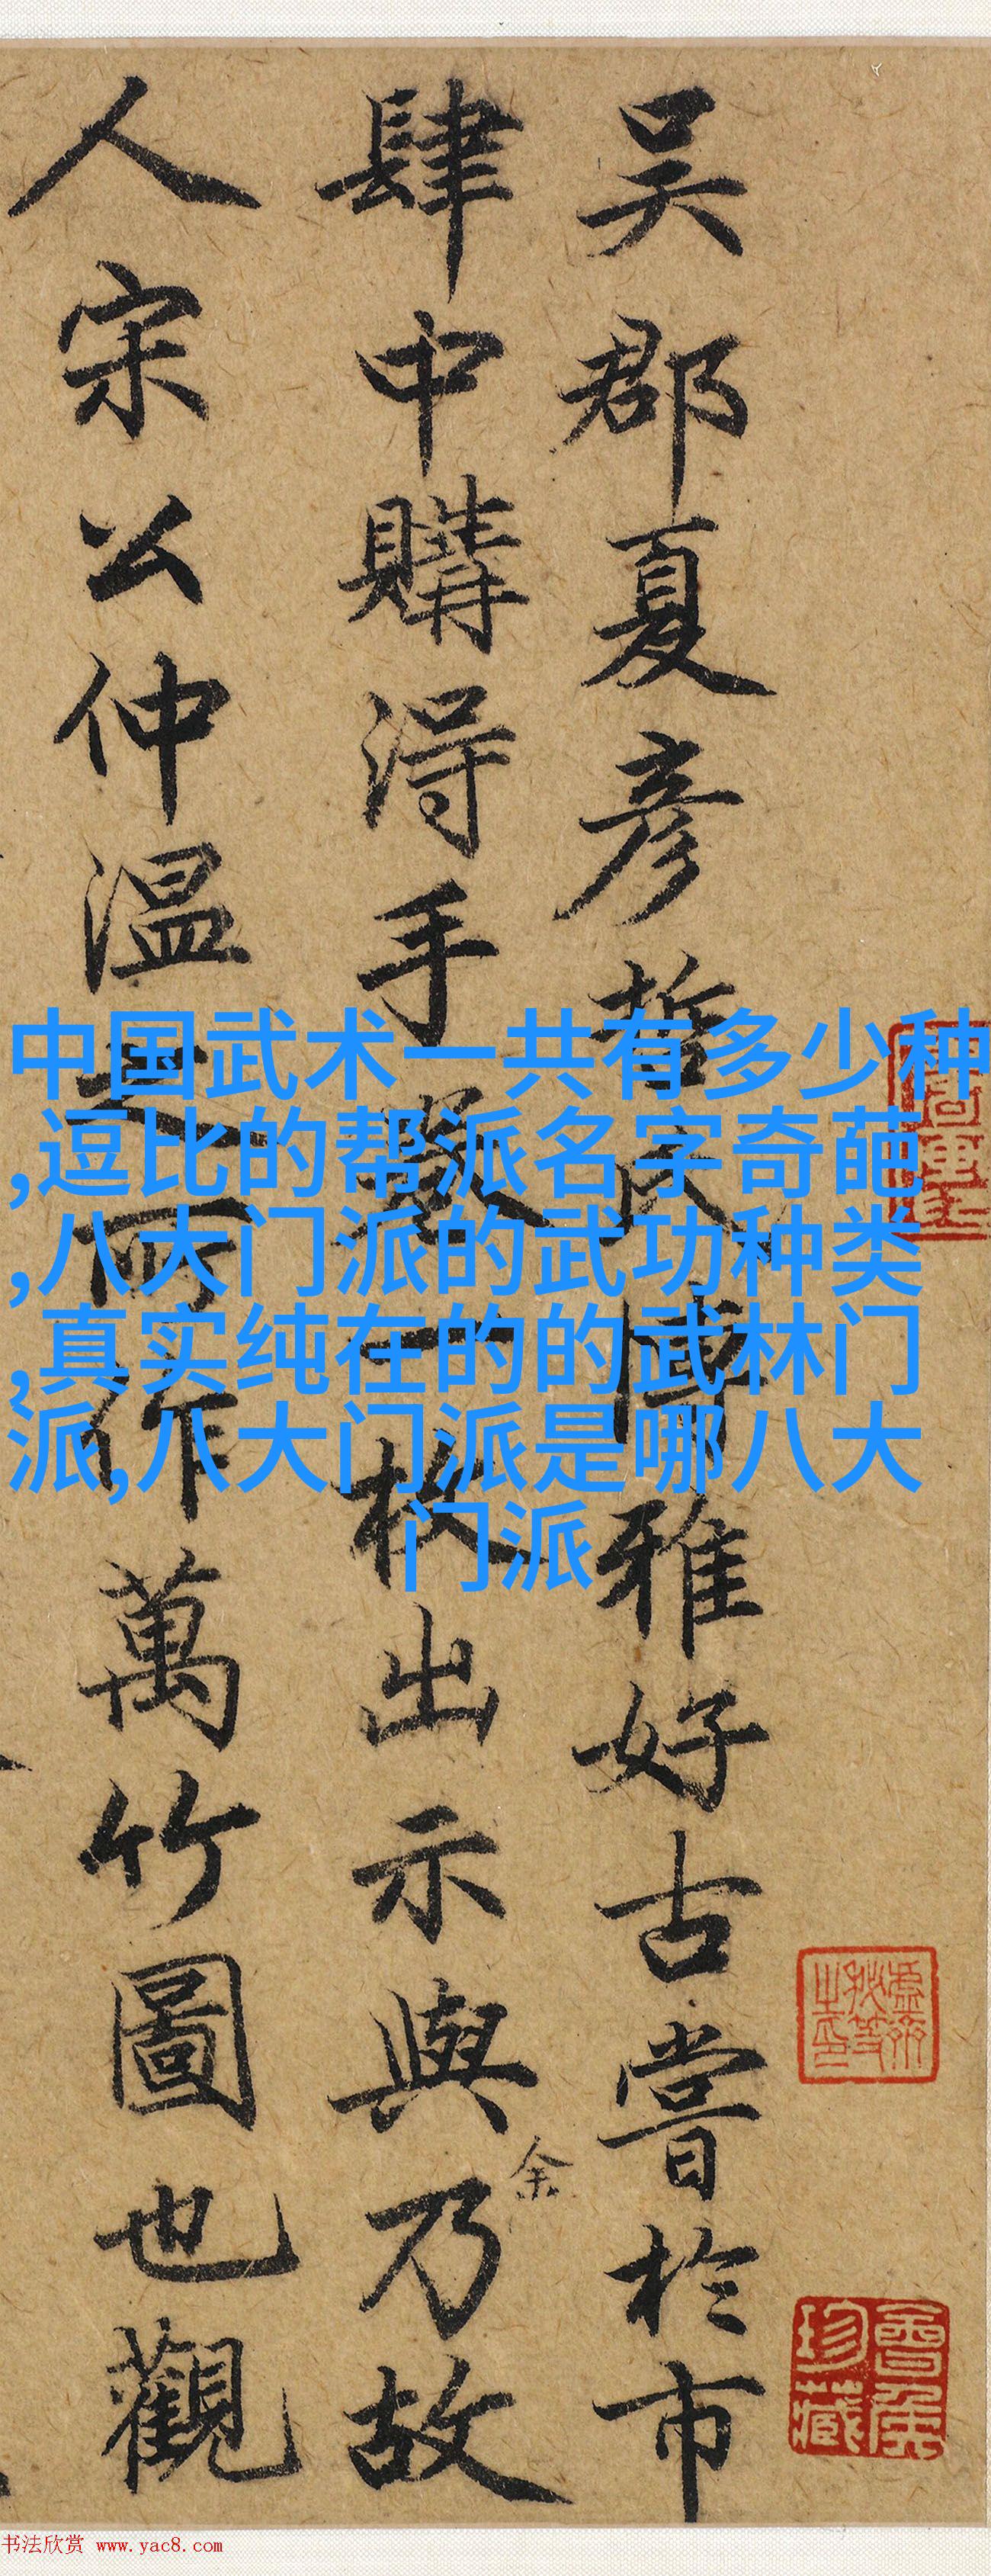 吴郡夏彦哲氏博雅好古嘗於市
肆中購得手一枚出示與余乃故
人宋公仲温之所作萬竹圖也觀
中国武术一共有多少种
,逗比的帮派名字奇葩
,八大门派的武功种类
,真实纯在的的武林门
派,八大门派是哪八大
门派
珍藏
书法欣赏 www.yac8.com